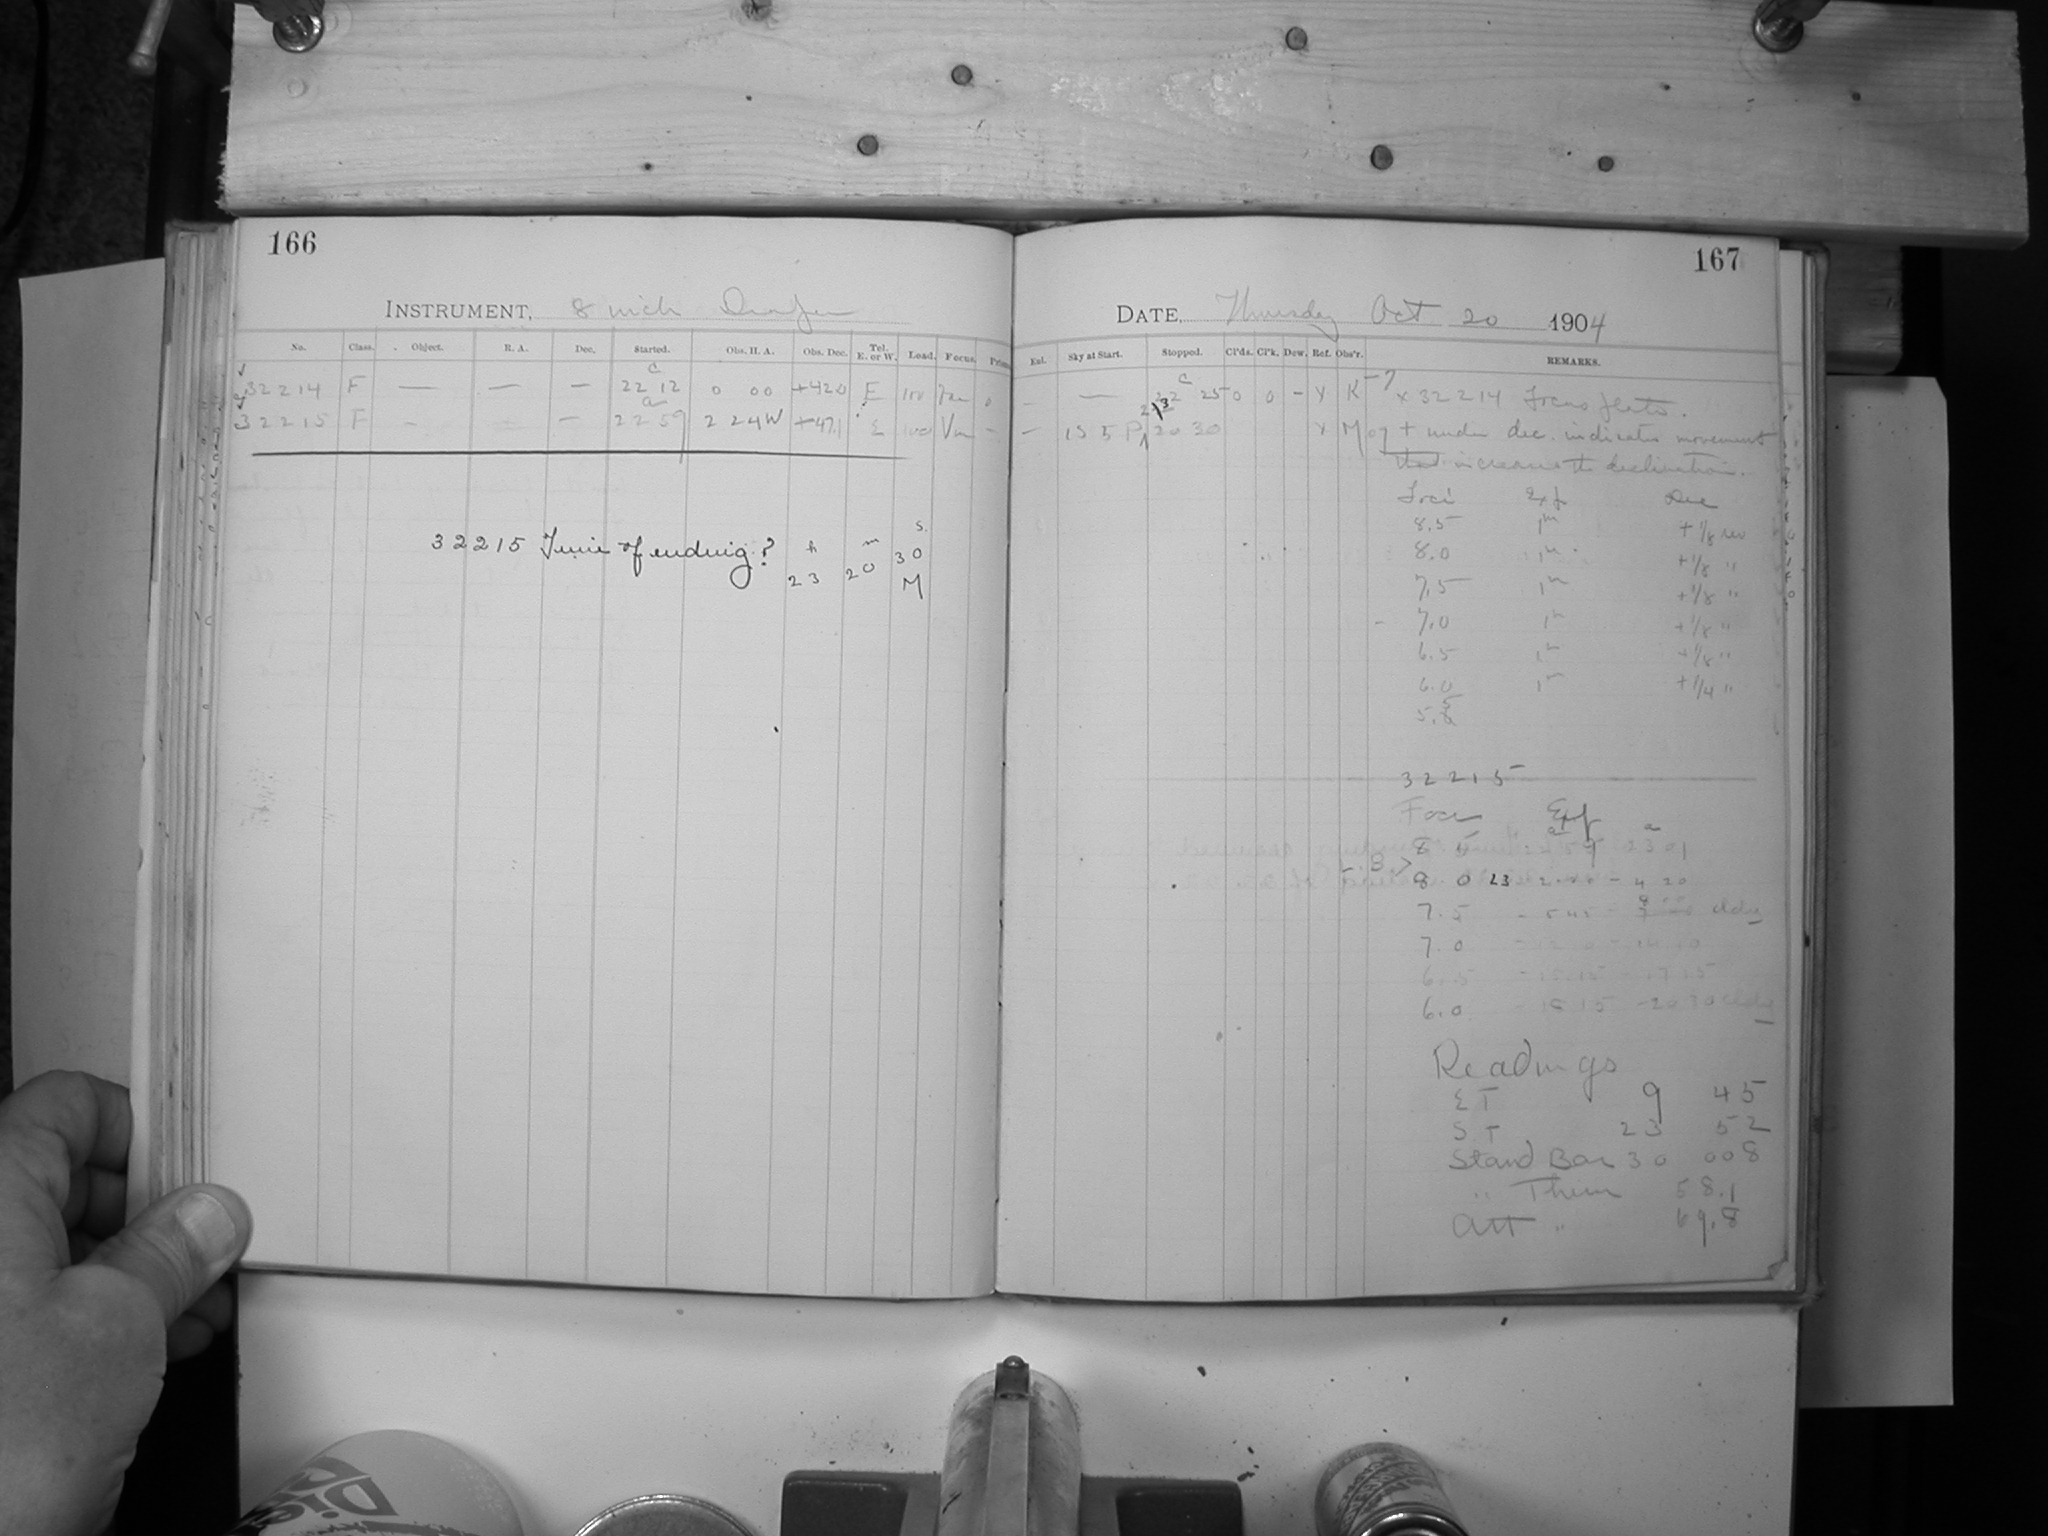 166
INSTRUMENT, 8 inch Draper
No. Class. Object. R. A. Dec. Started. Obs. H. A. Obs. Dec. Tel. E. or W. Load. Focus.
32214 F — — — 22 12 0 00 +42.0 E 100
32215 F — — — 22 59 2 24W +47.1 E 100 Var
32215 Time of ending? h m s.
23 20 30
M
167
DATE, Thursday Oct 20 1904
Sky at Start. Stopped. Cl'ds. Cl'k. Dew. Ref. Obs'r. REMARKS.
— — 22 25 0 0 - Y K x 32214 Focus plate.
— 15 5 P 23 20 30 Y M + under dec. indicates movement
that increases the declination.
Foci Exp Dec
8.5 1m + 1/8 rev
8.0 1m + 1/8 "
7.5 1m + 1/8 "
7.0 1m + 1/8 "
6.5 1m + 1/8 "
6.0 1m + 1/4 "
32215
Focus Exp
23 01
8 0 23 - 4 20
7.5 - 5 45 - cldy
7.0
6.5 17 15
6.0 - 18 15 - 20 30 cldy
Readings
E T 9 45
S. T 23 52
Stand Bar 30 008
" Therm 58.1
Att " 69.8